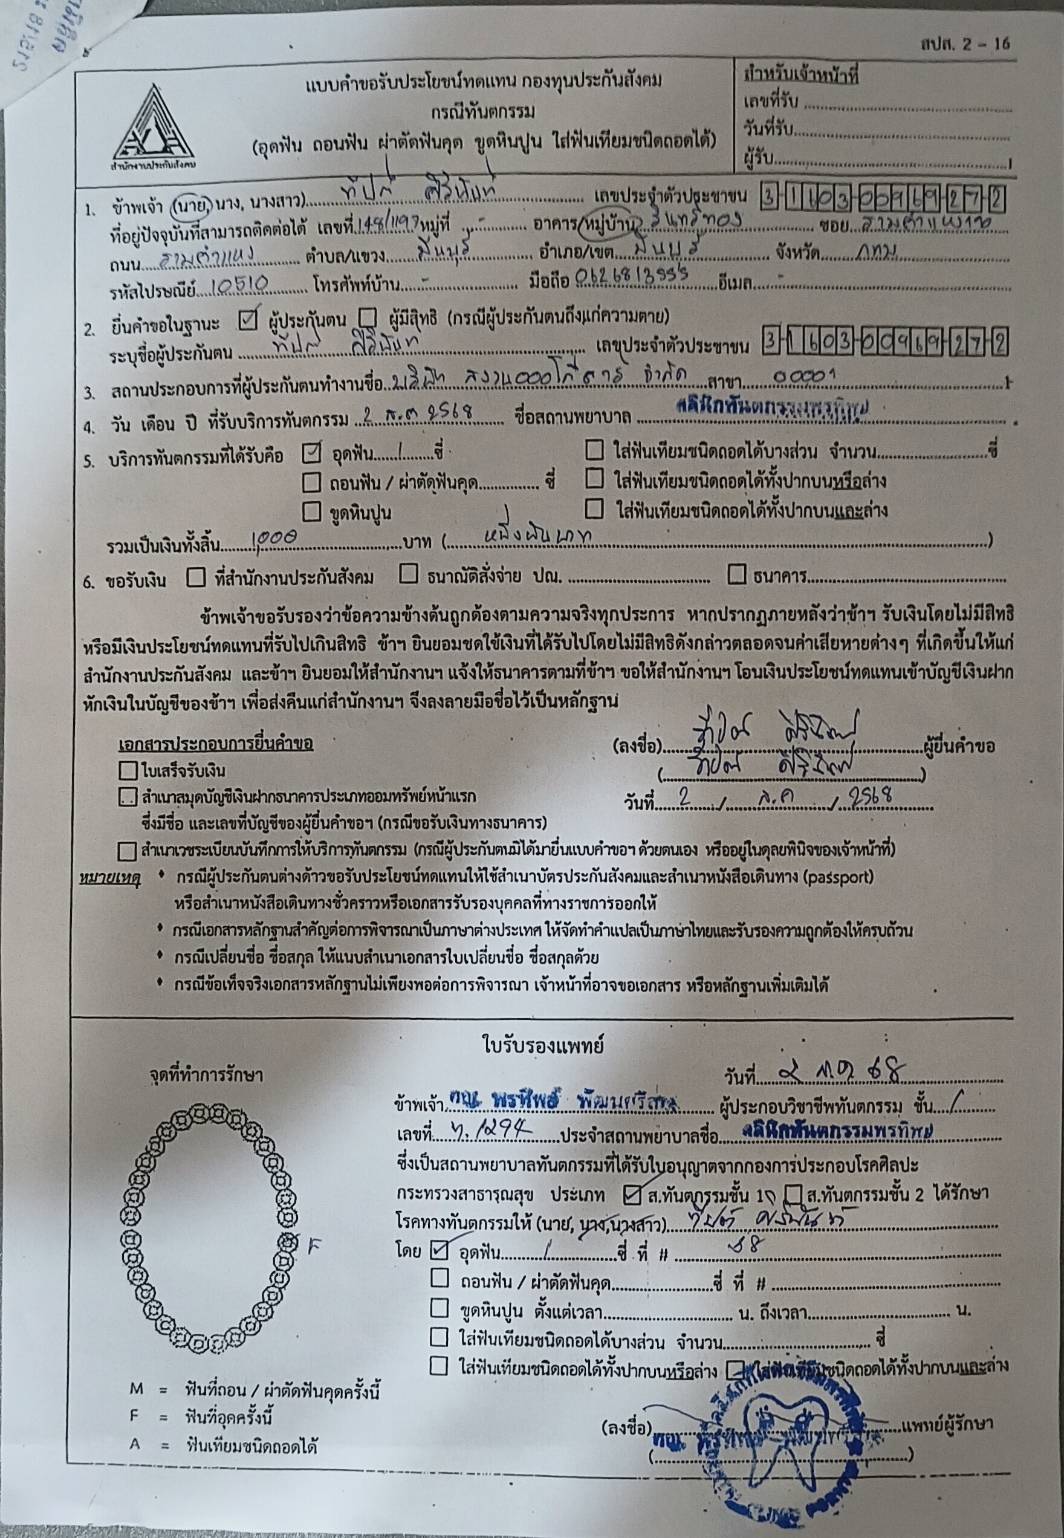 สปส. 2 - 16
แบบคำขอรับประโยชน์ทดแทน กองทุนประกันสังคม
กรณีทันตกรรม
(อุดฟัน ถอนฟัน ผ่าตัดฟันคุด ขูดหินปูน ใส่ฟันเทียมชนิดถอดได้)
สำนักงานประกันสังคม
สำหรับเจ้าหน้าที่
เลขที่รับ
วันที่รับ
ผู้รับ
1. ข้าพเจ้า (นาย, นาง, นางสาว) เลขประจำตัวประชาชน 3 1603 00969 27 2
ที่อยู่ปัจจุบันที่สามารถติดต่อได้ เลขที่ 148/1197 หมู่ที่ - อาคาร/หมู่บ้าน ซอย รามคำแหง
ถนน รามคำแหง ตำบล/แขวง มีนบุรี อำเภอ/เขต มีนบุรี จังหวัด กทม
รหัสไปรษณีย์ 10510 โทรศัพท์บ้าน - มือถือ 0626813555 อีเมล -
2. ยื่นคำขอในฐานะ ☑ ผู้ประกันตน ☐ ผู้มีสิทธิ (กรณีผู้ประกันตนถึงแก่ความตาย)
ระบุชื่อผู้ประกันตน เลขประจำตัวประชาชน 3 1603 00969 27 2
3. สถานประกอบการที่ผู้ประกันตนทำงานชื่อ บริษัท จำกัด สาขา 00001
4. วัน เดือน ปี ที่รับบริการทันตกรรม 2 ส.ค 2568 ชื่อสถานพยาบาล คลินิกทันตกรรมพรทิพย์
5. บริการทันตกรรมที่ได้รับคือ ☑ อุดฟัน 1 ซี่ ☐ ใส่ฟันเทียมชนิดถอดได้บางส่วน จำนวน ซี่
☐ ถอนฟัน / ผ่าตัดฟันคุด ซี่ ☐ ใส่ฟันเทียมชนิดถอดได้ทั้งปากบนหรือล่าง
☐ ขูดหินปูน ☐ ใส่ฟันเทียมชนิดถอดได้ทั้งปากบนและล่าง
รวมเป็นเงินทั้งสิ้น 1,000 บาท (หนึ่งพันบาท)
6. ขอรับเงิน ☐ ที่สำนักงานประกันสังคม ☐ ธนาณัติสั่งจ่าย ปณ. ☐ ธนาคาร
ข้าพเจ้าขอรับรองว่าข้อความข้างต้นถูกต้องตามความจริงทุกประการ หากปรากฏภายหลังว่าข้าฯ รับเงินโดยไม่มีสิทธิ
หรือมีเงินประโยชน์ทดแทนที่รับไปเกินสิทธิ ข้าฯ ยินยอมชดใช้เงินที่ได้รับไปโดยไม่มีสิทธิดังกล่าวตลอดจนค่าเสียหายต่างๆ ที่เกิดขึ้นให้แก่
สำนักงานประกันสังคม และข้าฯ ยินยอมให้สำนักงานฯ แจ้งให้ธนาคารตามที่ข้าฯ ขอให้สำนักงานฯ โอนเงินประโยชน์ทดแทนเข้าบัญชีเงินฝาก
หักเงินในบัญชีของข้าฯ เพื่อส่งคืนแก่สำนักงานฯ จึงลงลายมือชื่อไว้เป็นหลักฐาน
เอกสารประกอบการยื่นคำขอ
(ลงชื่อ) ผู้ยื่นคำขอ
☐ ใบเสร็จรับเงิน
☐ สำเนาสมุดบัญชีเงินฝากธนาคารประเภทออมทรัพย์หน้าแรก
วันที่ 2 / ส.ค / 2568
ซึ่งมีชื่อ และเลขที่บัญชีของผู้ยื่นคำขอฯ (กรณีขอรับเงินทางธนาคาร)
☐ สำเนาเวชระเบียนบันทึกการให้บริการทันตกรรม (กรณีผู้ประกันตนมิได้มายื่นแบบคำขอฯ ด้วยตนเอง หรืออยู่ในดุลยพินิจของเจ้าหน้าที่)
หมายเหตุ * กรณีผู้ประกันตนต่างด้าวขอรับประโยชน์ทดแทนให้ใช้สำเนาบัตรประกันสังคมและสำเนาหนังสือเดินทาง (passport)
หรือสำเนาหนังสือเดินทางชั่วคราวหรือเอกสารรับรองบุคคลที่ทางราชการออกให้
* กรณีเอกสารหลักฐานสำคัญต่อการพิจารณาเป็นภาษาต่างประเทศ ให้จัดทำคำแปลเป็นภาษาไทยและรับรองความถูกต้องให้ครบถ้วน
* กรณีเปลี่ยนชื่อ ชื่อสกุล ให้แนบสำเนาเอกสารใบเปลี่ยนชื่อ ชื่อสกุลด้วย
* กรณีข้อเท็จจริงเอกสารหลักฐานไม่เพียงพอต่อการพิจารณา เจ้าหน้าที่อาจขอเอกสาร หรือหลักฐานเพิ่มเติมได้
ใบรับรองแพทย์
จุดที่ทำการรักษา
วันที่ 2 68
ข้าพเจ้า ทญ. พรทิพย์ ผู้ประกอบวิชาชีพทันตกรรม ชั้น 1
เลขที่ ท. 1294 ประจำสถานพยาบาลชื่อ คลินิกทันตกรรมพรทิพย์
ซึ่งเป็นสถานพยาบาลทันตกรรมที่ได้รับใบอนุญาตจากกองการประกอบโรคศิลปะ
กระทรวงสาธารณสุข ประเภท ☑ ส.ทันตกรรมชั้น 1 ☐ ส.ทันตกรรมชั้น 2 ได้รักษา
โรคทางทันตกรรมให้ (นาย, นาง, นางสาว)
F
โดย ☑ อุดฟัน 1 ซี่ ที่ # 38
☐ ถอนฟัน / ผ่าตัดฟันคุด ซี่ ที่ #
☐ ขูดหินปูน ตั้งแต่เวลา น. ถึงเวลา น.
☐ ใส่ฟันเทียมชนิดถอดได้บางส่วน จำนวน ซี่
☐ ใส่ฟันเทียมชนิดถอดได้ทั้งปากบนหรือล่าง ☐ ใส่ฟันเทียมชนิดถอดได้ทั้งปากบนและล่าง
M = ฟันที่ถอน / ผ่าตัดฟันคุดครั้งนี้
F = ฟันที่อุดครั้งนี้
A = ฟันเทียมชนิดถอดได้
(ลงชื่อ) แพทย์ผู้รักษา